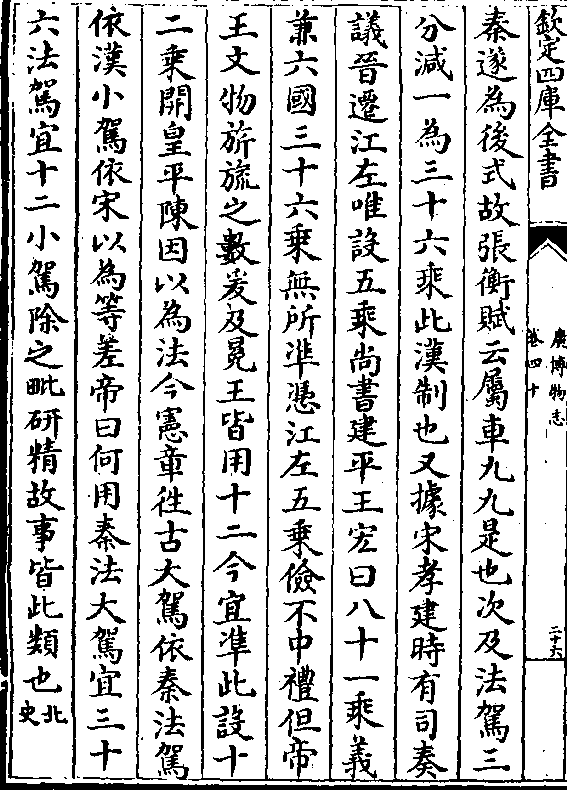 欽定四庫全書
廣博物志
卷四十
二十六
秦遂為後式故張衡賦云屬車九九是也次及法駕三
分減一為三十六乘此漢制也又據宋孝建時有司奏
議晉遷江左唯設五乘尚書建平王宏曰八十一乘義
兼六國三十六乘無所準憑江左五乘儉不中禮但帝
王文物旂旒之數爰及冕王皆用十二今宜準此設十
二乘開皇平陳因以為法今憲章徃古大駕依秦法駕
依漢小駕依宋以為等差帝曰何用秦法大駕宜三十
六法駕宜十二小駕除之毗研精故事皆此類也北史